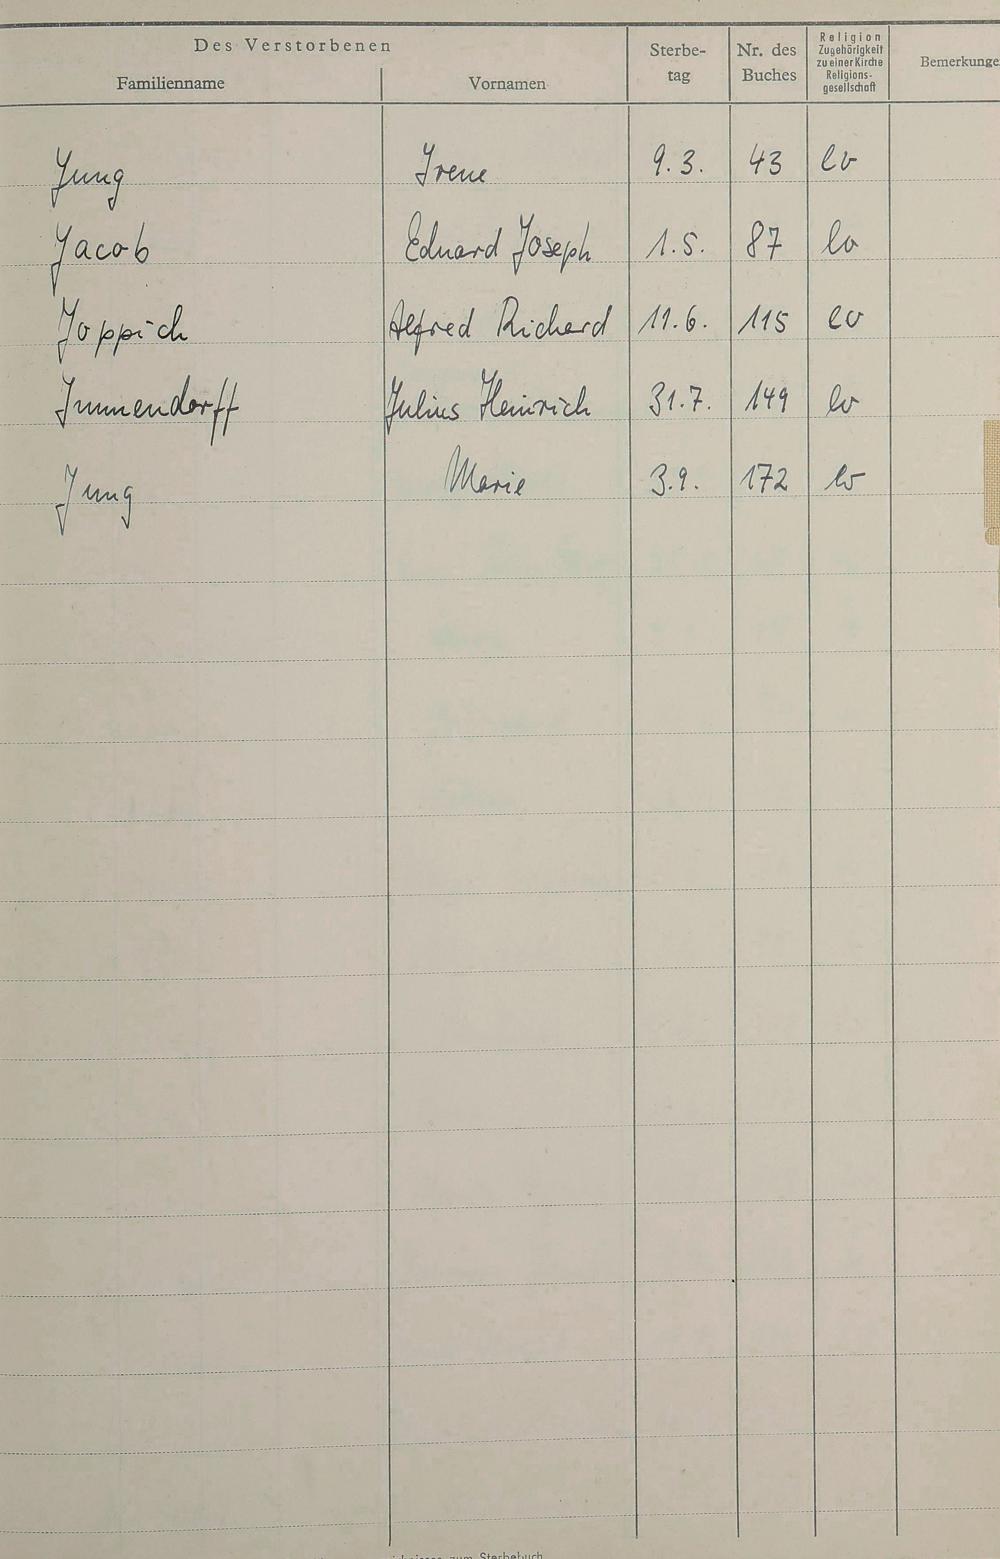 Des Verstorbenen
Familienname Vornamen Sterbe-
tag Nr. des
Buches Religion
Zugehörigkeit
zu einer Kirche
Religions-
gesellschaft Bemerkunge
Jung Irene 9.3. 43 ev
Jacob Eduard Joseph 1.5. 87 ev
Joppich Alfred Richard 11.6. 115 ev
Immendorff Julius Heinrich 31.7. 149 ev
Jung Marie 3.9. 172 ev
zum Sterbebuch